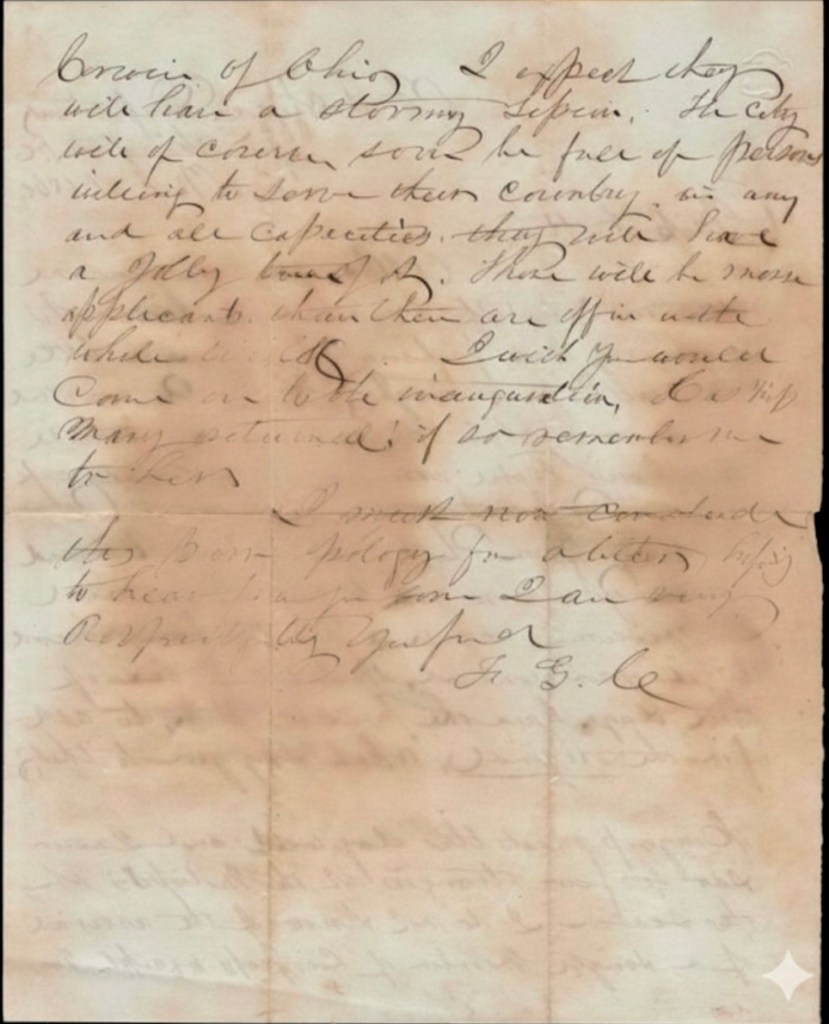 Corwin of Ohio I expect they
will have a stormy Session. The city
will of course soon be full of persons
willing to serve their country in any
and all capacities. they will have
a Jolly time of it. There will be more
applicants than there are offic in the
whole I wish you would
Come on to the inauguration, Has Miss
Mary returned? if so remember me
to her
I must now conclude
this poor pology for a letter hoping
to hear from you soon I am very
Respectfully your friend
F. G. C